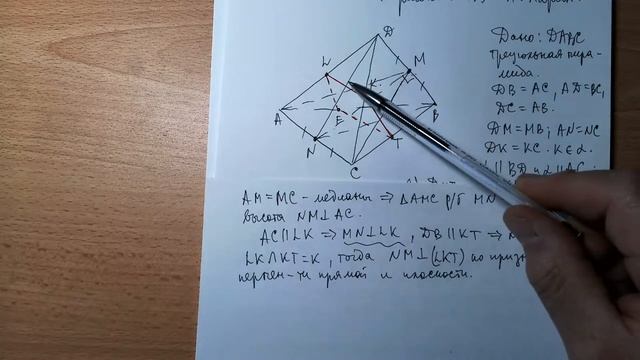 D
L
M
K
A
E
B
N
T
C
Дано: DABC
треугольная пира-
мида.
DB = AC, AD=BC,
DC = AB.
DM=MB; AN=NC
DK=KC. K∈α.
BD и α ∥ AC.
AM=MC - медианы ⇒ ΔAMC р/б MN
высота NM⊥AC.
AC∥LK ⇒ MN⊥LK, DB∥KT ⇒
LK∩KT=K, тогда NM⊥(LKT) по
прямой и плоскости.